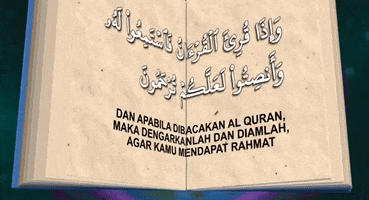 وَإِذَا قُرِئَ الْقُرْءَانُ فَاسْتَمِعُوا۟ لَهُۥ
وَأَنصِتُوا۟ لَعَلَّكُمْ تُرْحَمُونَ
DAN APABILA DIBACAKAN AL QURAN,
MAKA DENGARKANLAH DAN DIAMLAH,
AGAR KAMU MENDAPAT RAHMAT